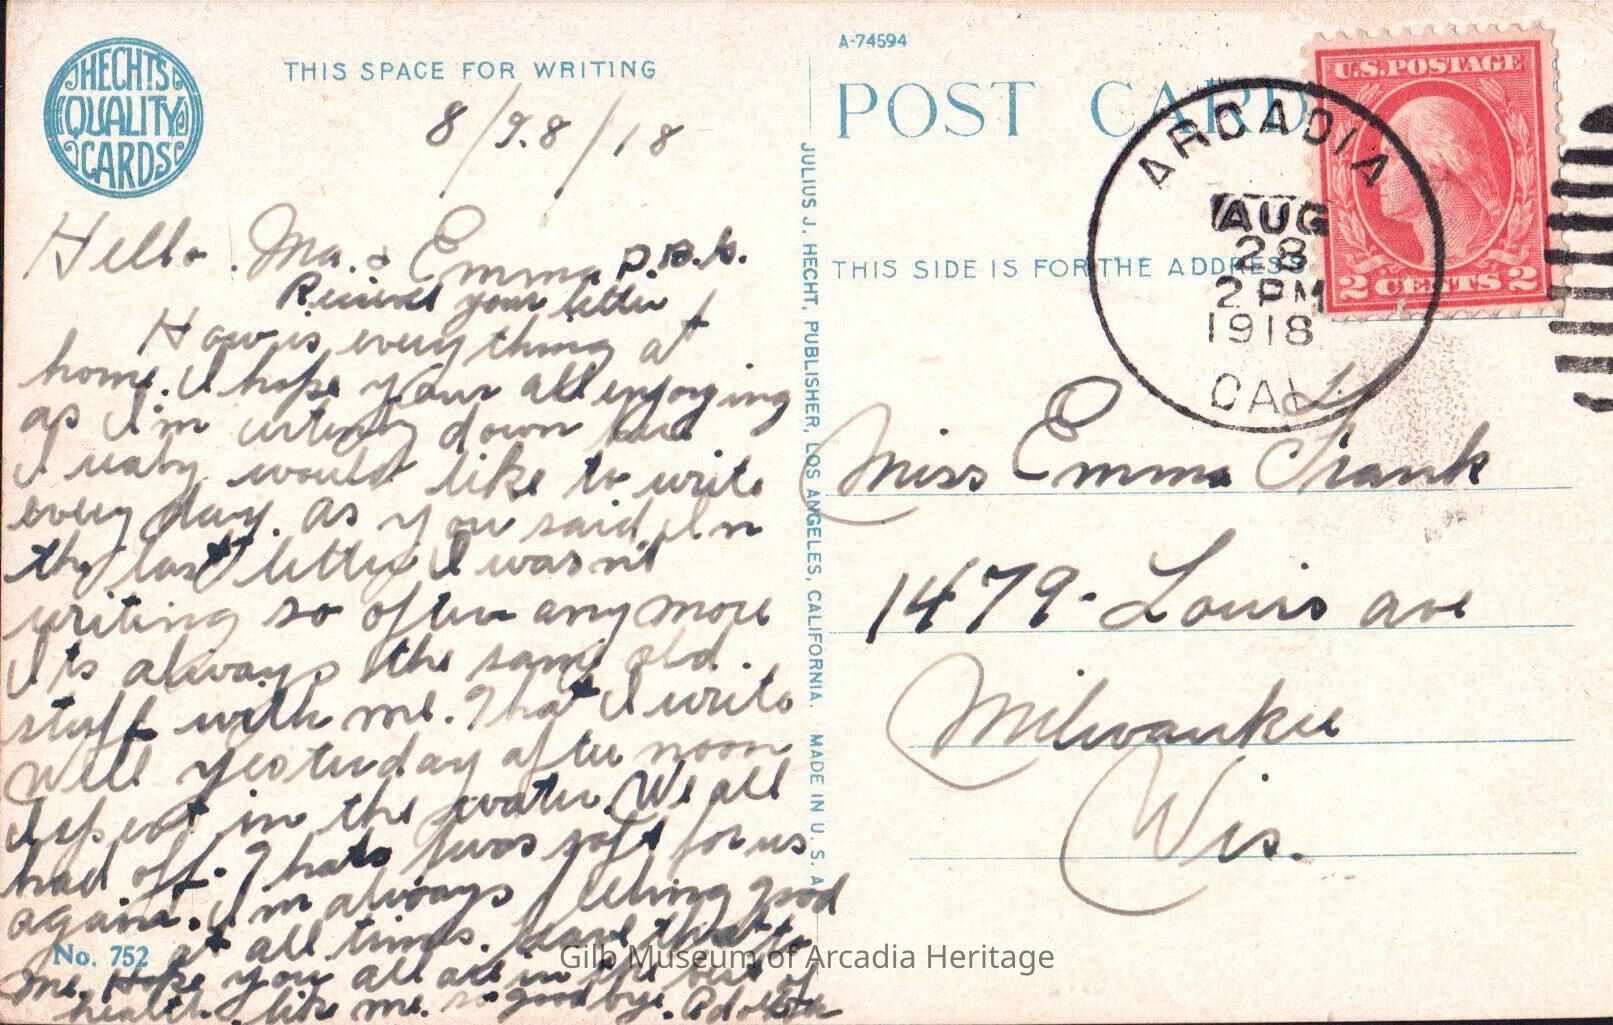 HECHTS
QUALITY
CARDS
THIS SPACE FOR WRITING
8/28/18
Hello. Ma. & Emma
Received your letter
How is everything at
home. I hope your all enjoying
as I'm writing down here
I would like to write
every day. As you said. In
the last letter I wasn't
writing so often any more
Its always the same old.
stuff with me. That I write
Well yesterday after noon
I spent in the water. We all
had off. Thats twas soft for us
again. I'm always feeling good
at all times. leave that to
me. Hope you all are in the best of
health. like me. so goodbye. Adolph
No. 752
JULIUS J. HECHT, PUBLISHER, LOS ANGELES, CALIFORNIA. MADE IN U. S. A
A-74594
POST CARD
THIS SIDE IS FOR THE ADDRESS
ARCADIA
AUG
28
2 PM
1918
CAL
U.S. POSTAGE
2 CENTS 2
Miss Emma Frank
1479- Louis ave
Milwaukee
Wis.
Gilb Museum of Arcadia Heritage